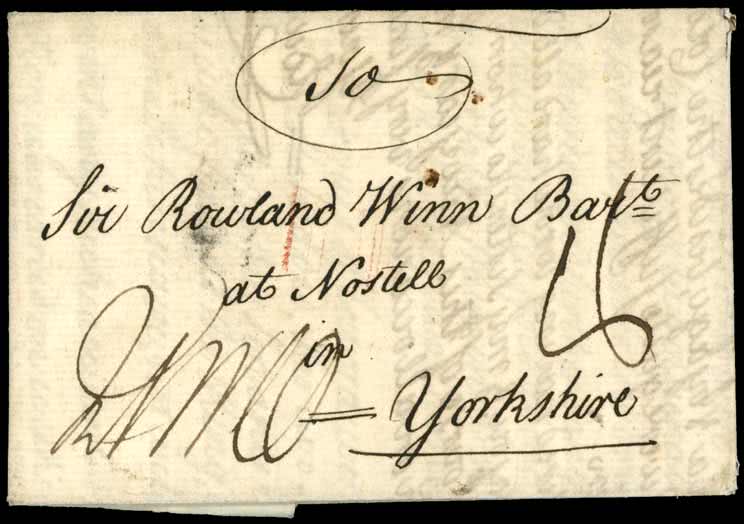 To
Sir Rowland Winn Bar.t
at Nostell
in
Yorkshire